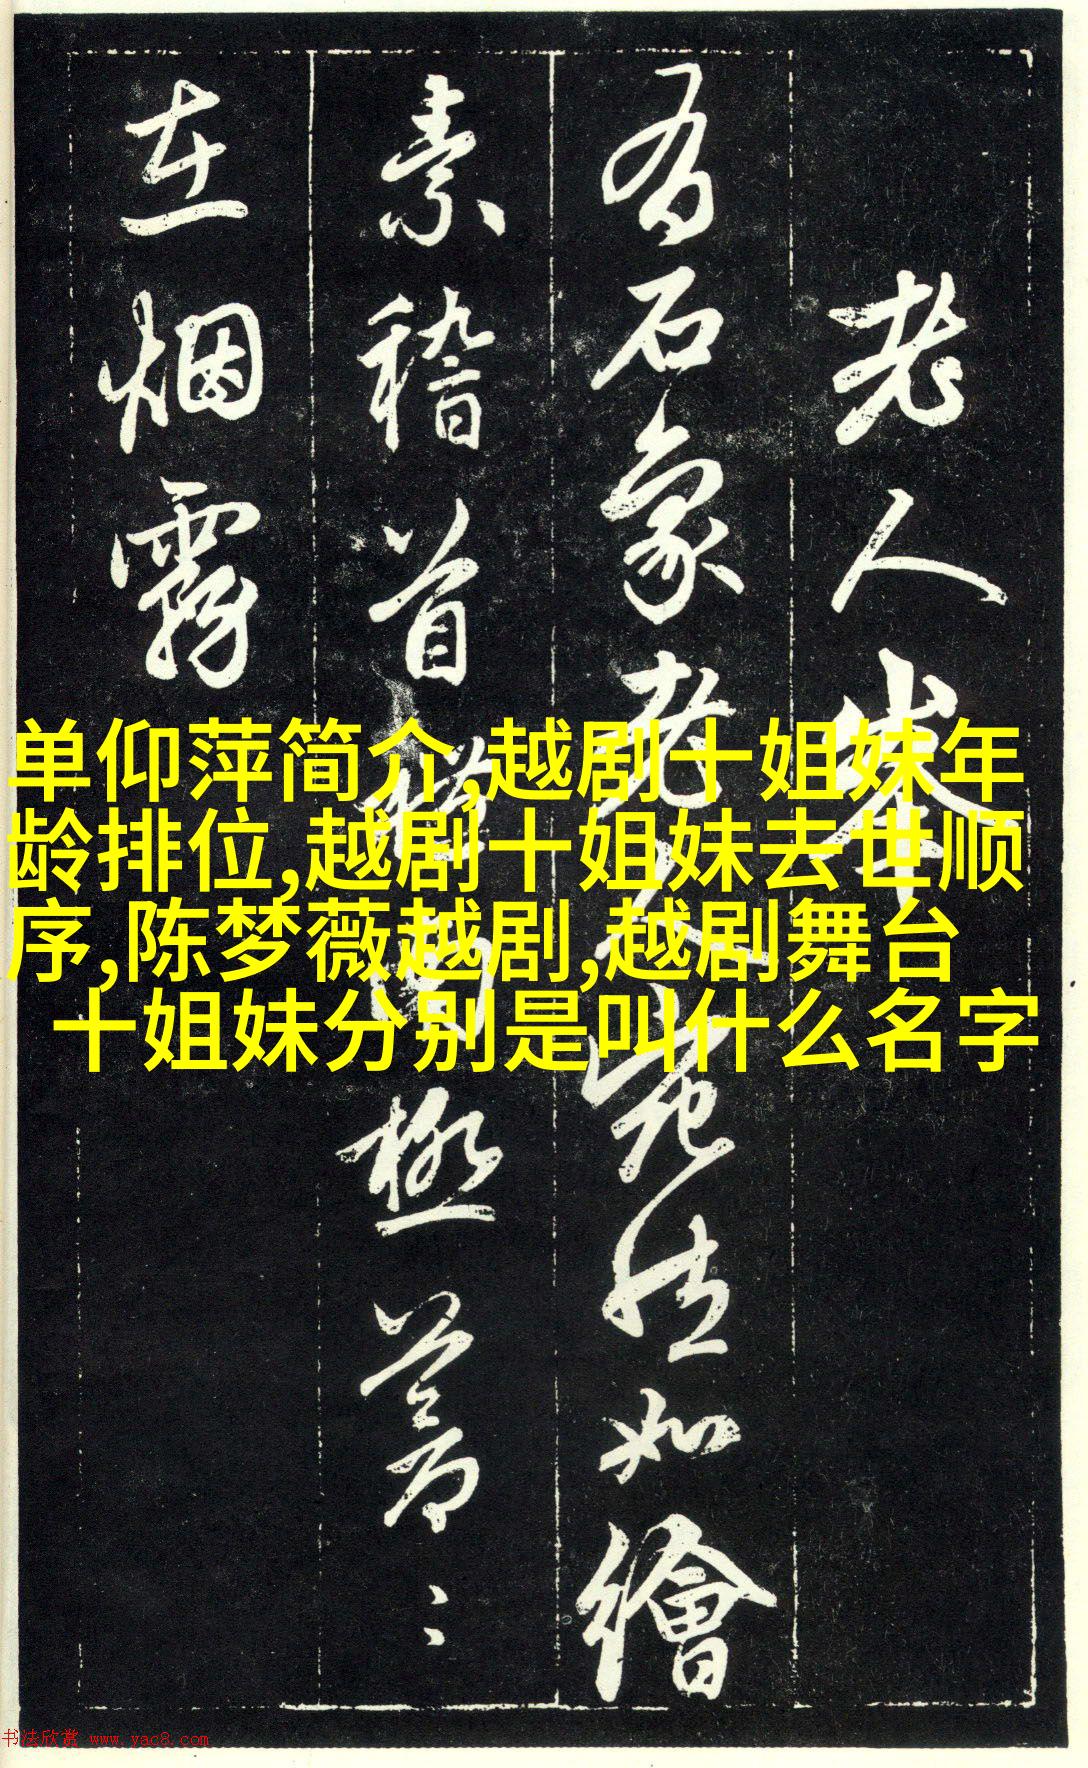 老人峯
有石象老人宛然如繪
素稽首
極莫〻
在烟霧
单仰萍简介,越剧十姐妹年
龄排位,越剧十姐妹去世顺
序,陈梦薇越剧,越剧舞台
十姐妹分别是叫什么名字
书法欣赏 www.yac8.com